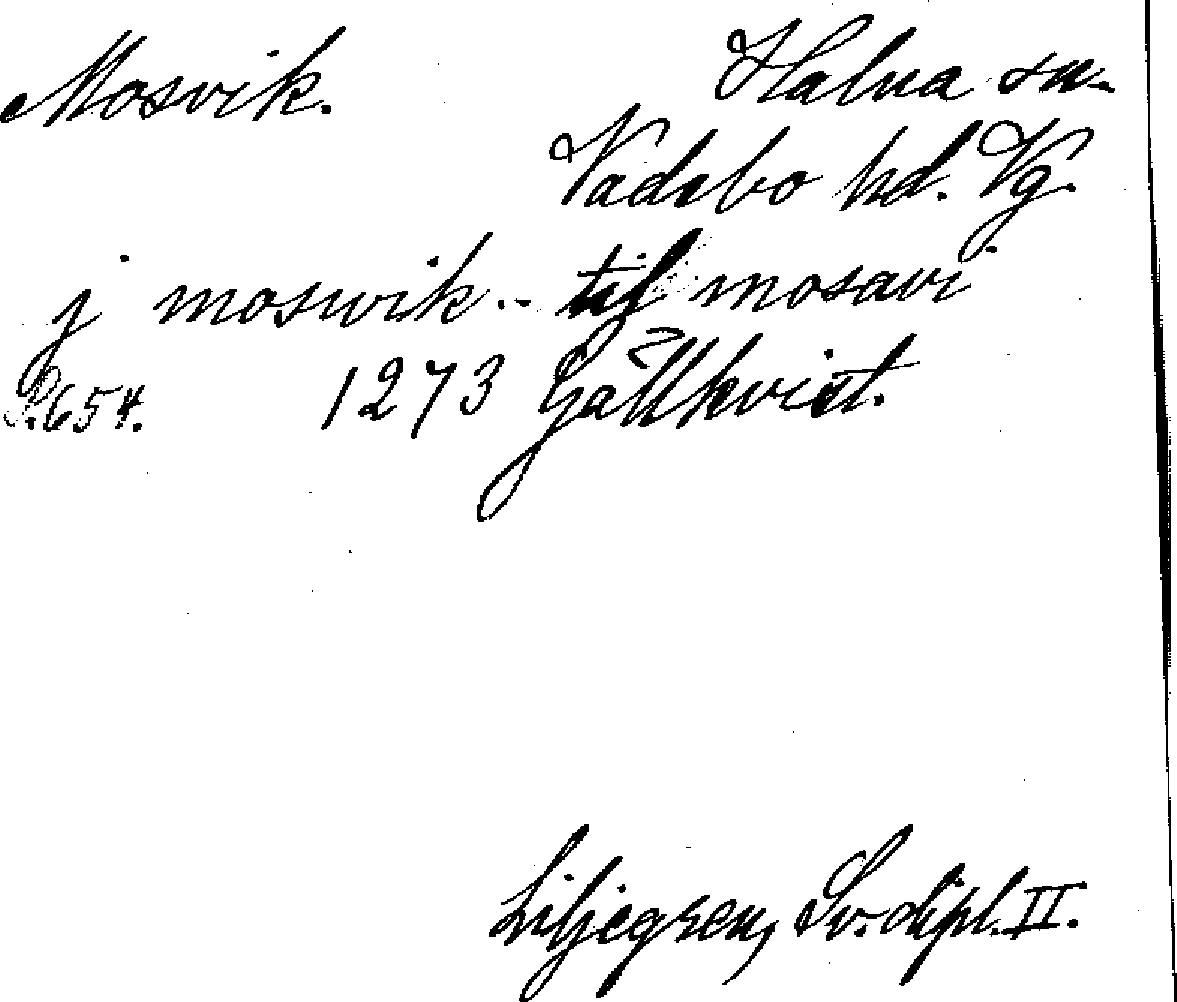 Mosvik. Halna sn.
Vadsbo hd. Vg.
j moswik - - til mosavi
P. 654. 1273 Gällkvist.
Liljegren, Sv. dipl. II.